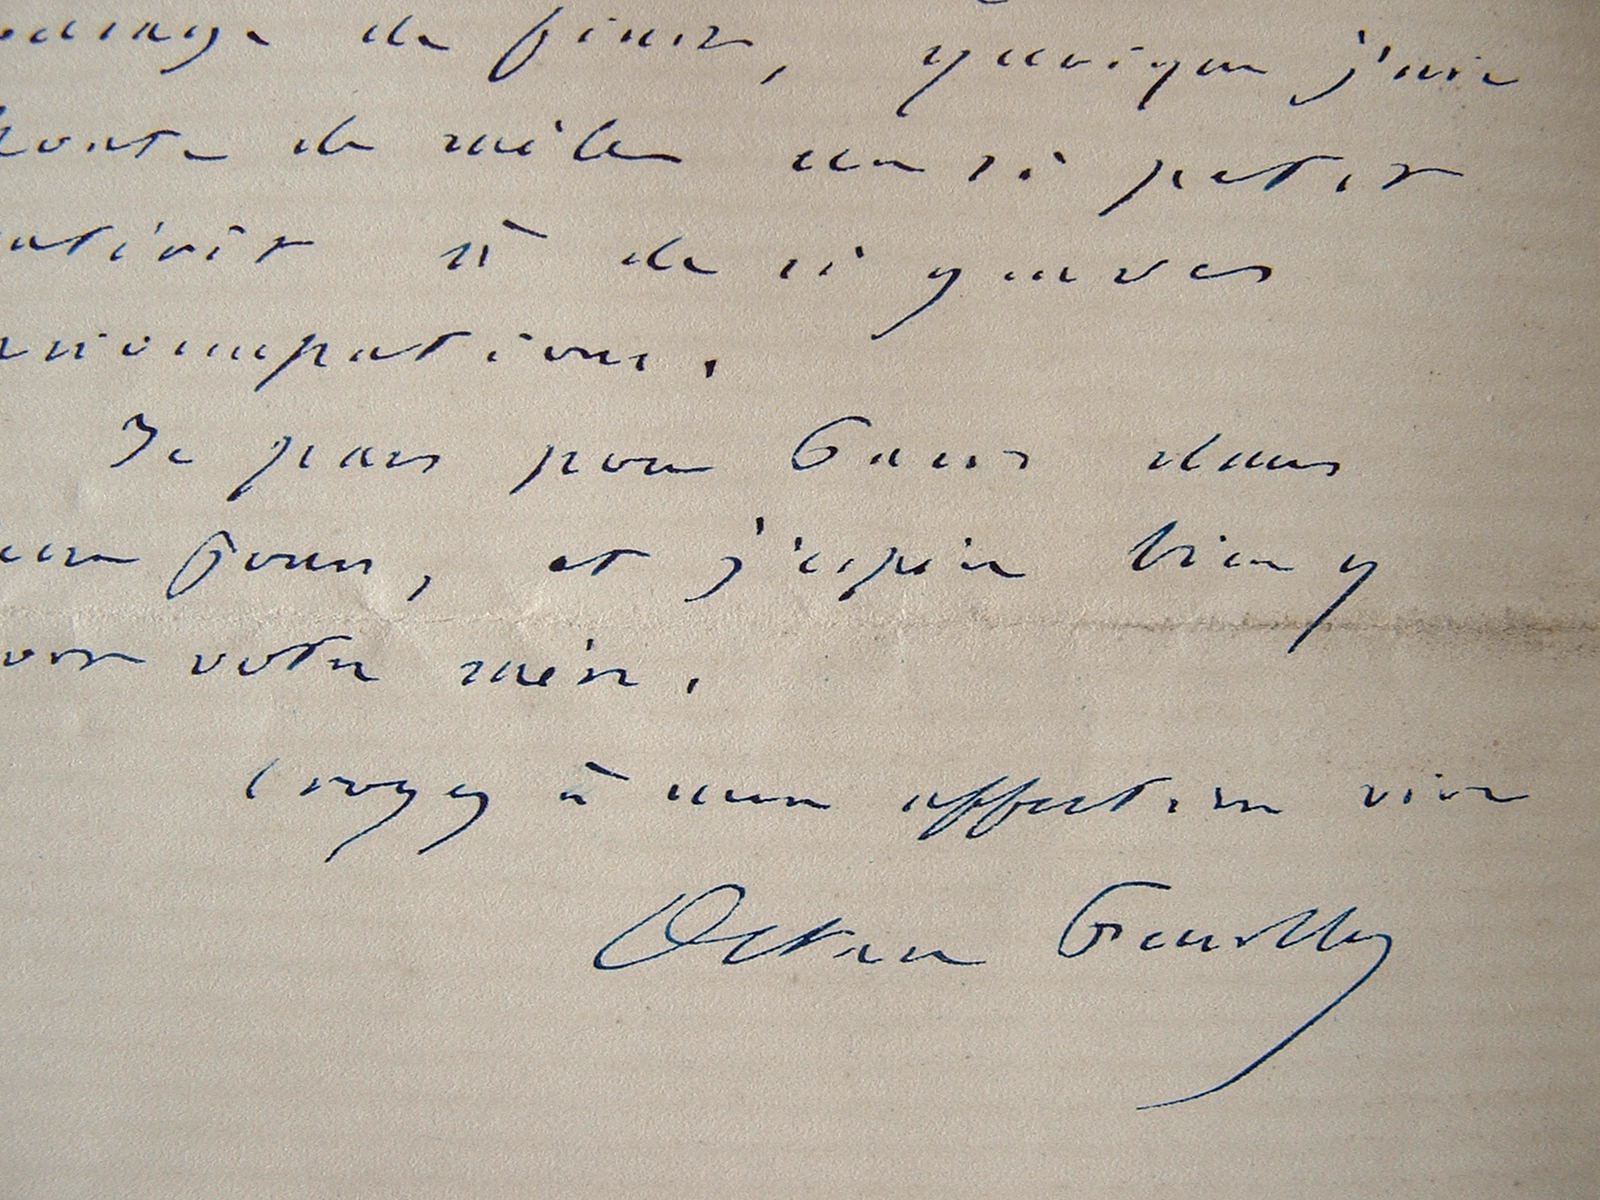 de finir, quoique j'aie
honte de mêler un si petit
intérêt à de si graves
préoccupations.
Je pars pour Paris dans
peu jours, et j'espère bien y
voir votre mère.
Croyez à mon affection vive
Octave Feuillet